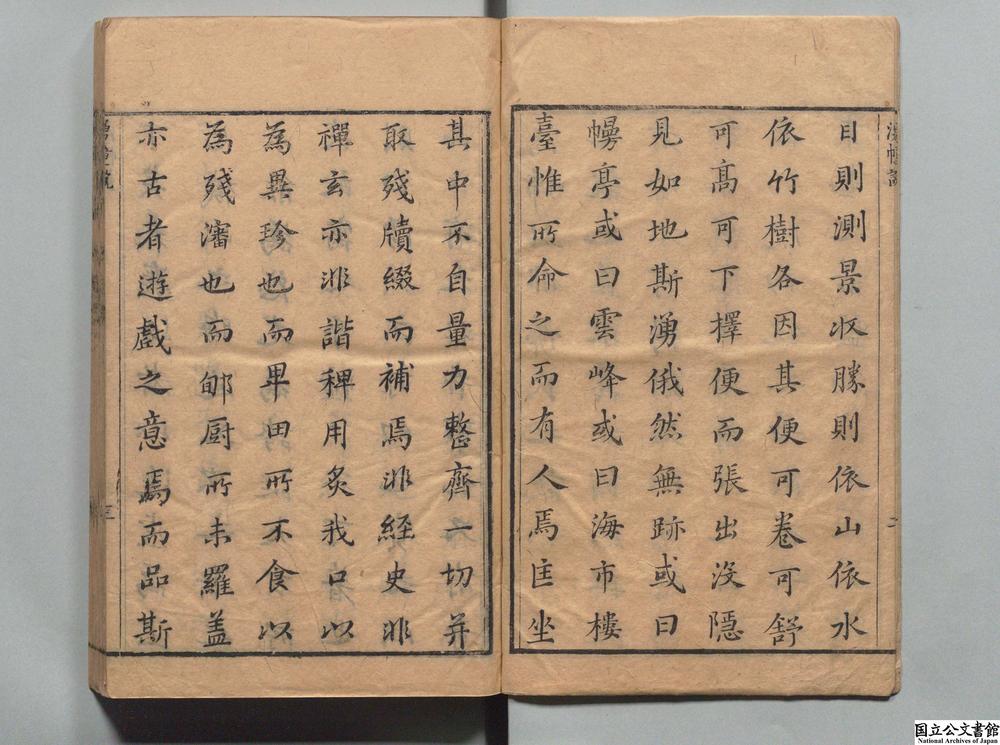 日則測景收勝則依山依水
依竹樹各因其便可卷可舒
可高可下擇便而張出沒隱
見如地斯湧俄然無跡或曰
幔亭或曰雲峰或曰海市樓
臺惟所命之而有人焉匡坐
二
其中不自量力整齊一切并
取殘牘綴而補焉非經史非
禪玄亦非諧稗用炙我口以
為異珍也而畢田所不食以
為殘瀋也而郇廚所未羅蓋
亦古者遊戲之意焉而品斯
三
国立公文書館
National Archives of Japan